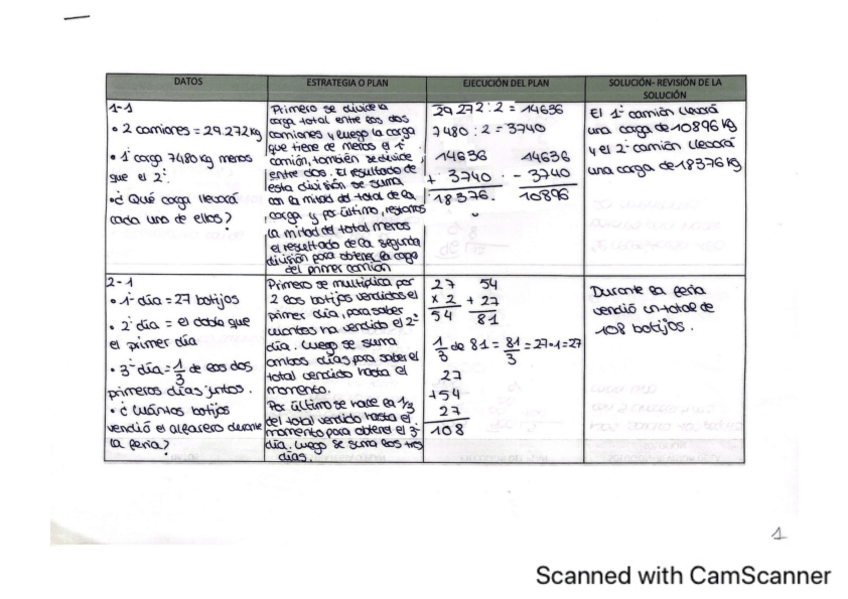 DATOS
ESTRATEGIA O PLAN
EJECUCIÓN DEL PLAN
SOLUCIÓN- REVISIÓN DE LA
SOLUCIÓN
1-1
• 2 camiones = 29.272 kg
• 1º carga 7480 kg menos
que el 2º.
• ¿Qué carga llevará
cada uno de ellos?
Primero se divide la
carga total entre los dos
camiones y luego la carga
que tiene de menos el 1º
camión, también se divide
entre dos. El resultado de
esta división se suma
con la mitad del total de la
carga y por último, restamos
la mitad del total menos
el resultado de la segunda
división para obtener la carga
del primer camión
29.272 : 2 = 14636
7480 : 2 = 3740
14636 14636
+ 3740 - 3740
18376. 10896
El 1º camión llevará
una carga de 10896 kg
y el 2º camión llevará
una carga de 18376 kg
2-1
• 1º día = 27 botijos
• 2º día = el doble que
el primer día
• 3º día = 1/3 de los dos
primeros días juntos.
• ¿Cuántos botijos
vendió el alfarero durante
la feria?
Primero se multiplica por
2 los botijos vendidos el
primer día, para saber
cuantos ha vendido el 2º
día. Luego se suma
ambos días para saber el
total vendido hasta el
momento.
Por último se hace la 1/3
del total vendido hasta el
momento para obtener el 3º
día. Luego se suma los tres
días.
27 54
x 2 + 27
54 81
1/3 de 81 = 81/3 = 27•1=27
27
+54
27
108
Durante la feria
vendió un total de
108 botijos.
1
Scanned with CamScanner